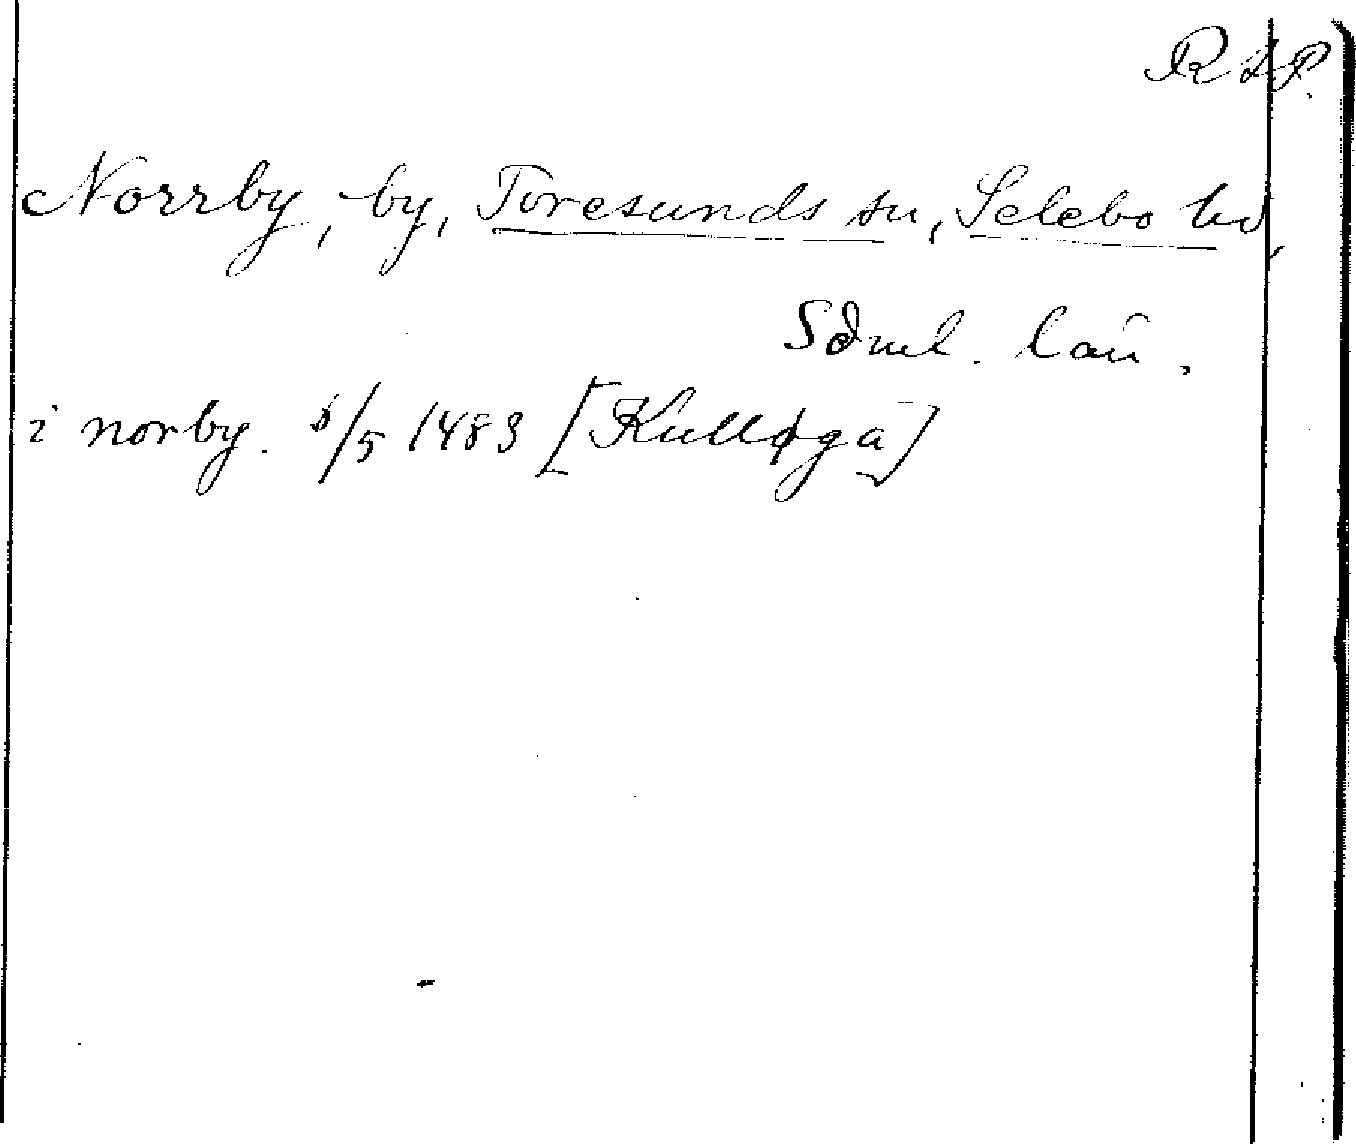 RAP.
Norrby, by, Toresunds sn, Selebo hd,
Sdml. län.
i norby. 8/5 1483 [Kulløga]